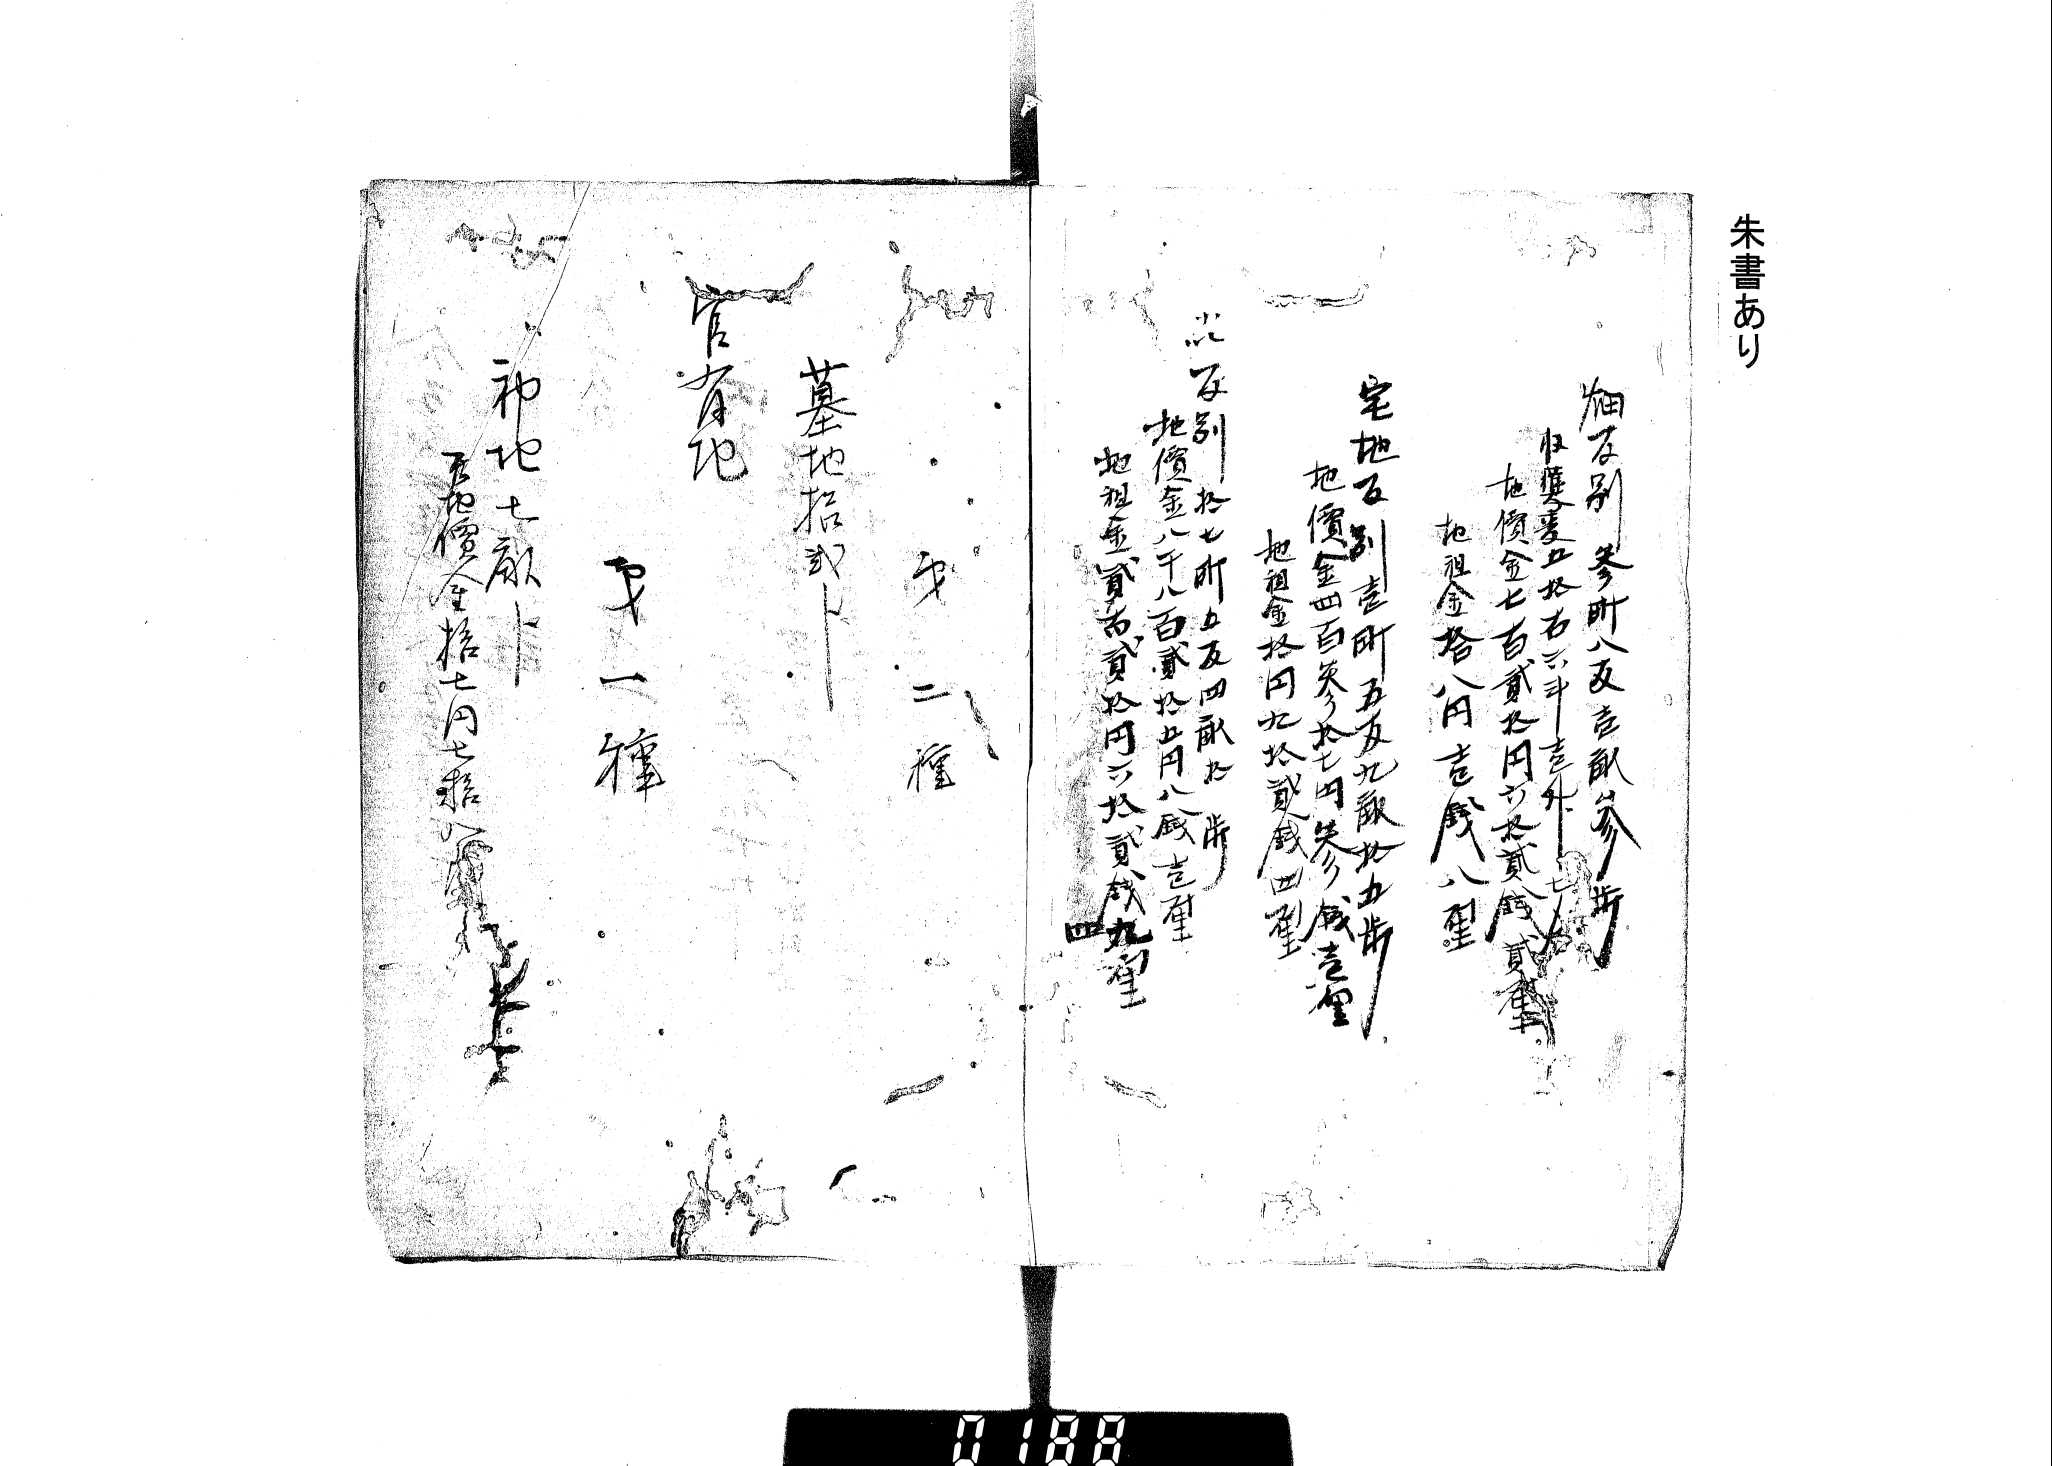 朱書あり
畑反別参町八反壱畝参歩
収獲麦五拾石六斗壱升七合
地價金七百貳拾円六拾貳銭貳厘
地租金拾八円壱銭八厘
宅地反別壱町五反九畝拾五歩
地價金四百参拾七円参銭壱厘
地租金拾円九拾貳銭四厘
反別拾七町五反四畝拾歩
地價金八千八百貳拾五円八銭壱厘
地租金貳百貳拾円六拾貳銭九厘
四
第二種
墓地拾弐歩
官有地
第一種
神地七畝歩
地價金拾七円七拾八
0188